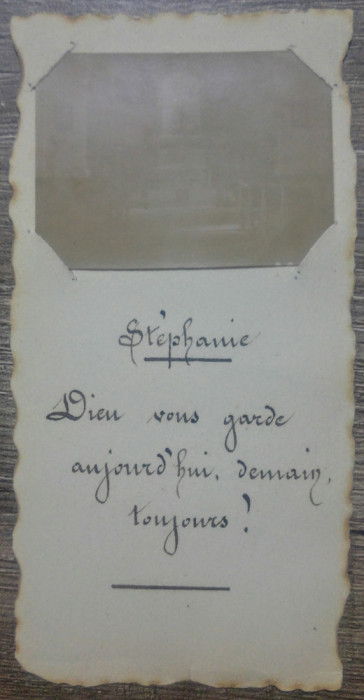 Stéphanie
Dieu vous garde
aujourd'hui, demain,
toujours !